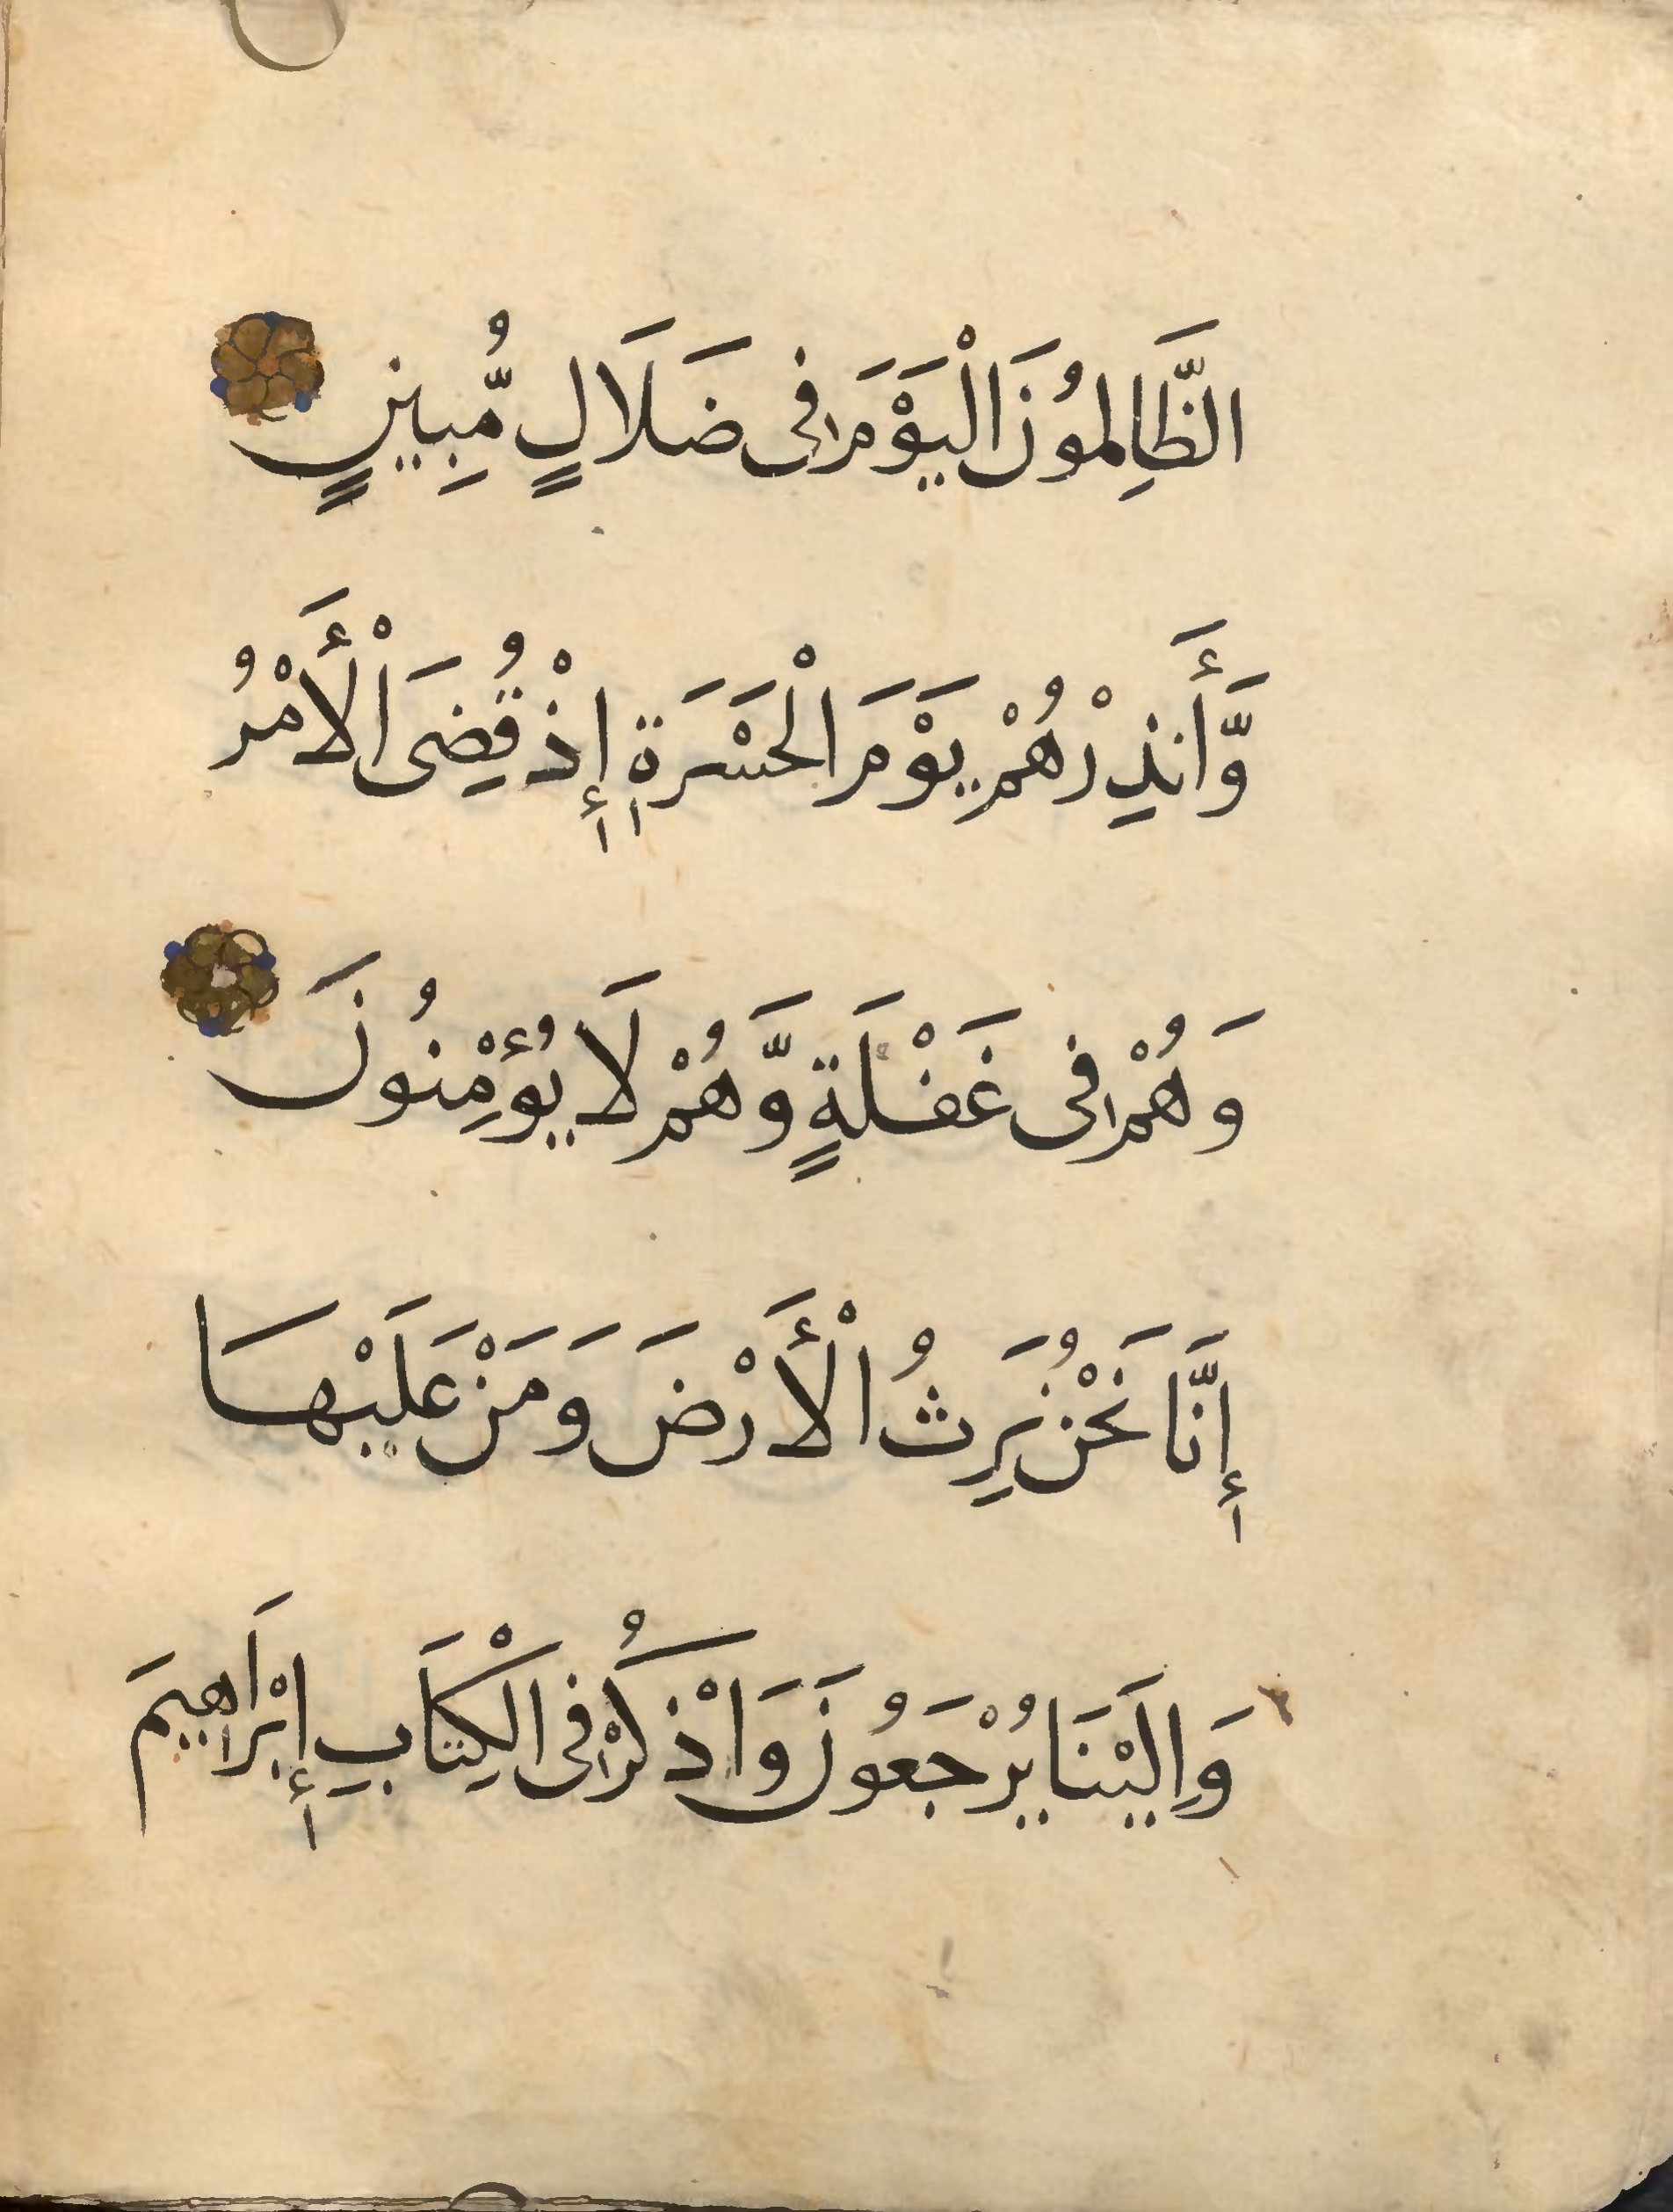 الظَّالِمُونَ الْيَوْمَ فِى ضَلَالٍ مُّبِينٍ
وَّأَنذِرْهُمْ يَوْمَ الْحَسْرَةِ إِذْ قُضِىَ الْأَمْرُ
وَهُمْ فِى غَفْلَةٍ وَّهُمْ لَا يُؤْمِنُونَ
إِنَّا نَحْنُ نَرِثُ الْأَرْضَ وَمَنْ عَلَيْهَا
وَإِلَيْنَا يُرْجَعُونَ وَاذْكُرْ فِى الْكِتَابِ إِبْرَاهِيمَ